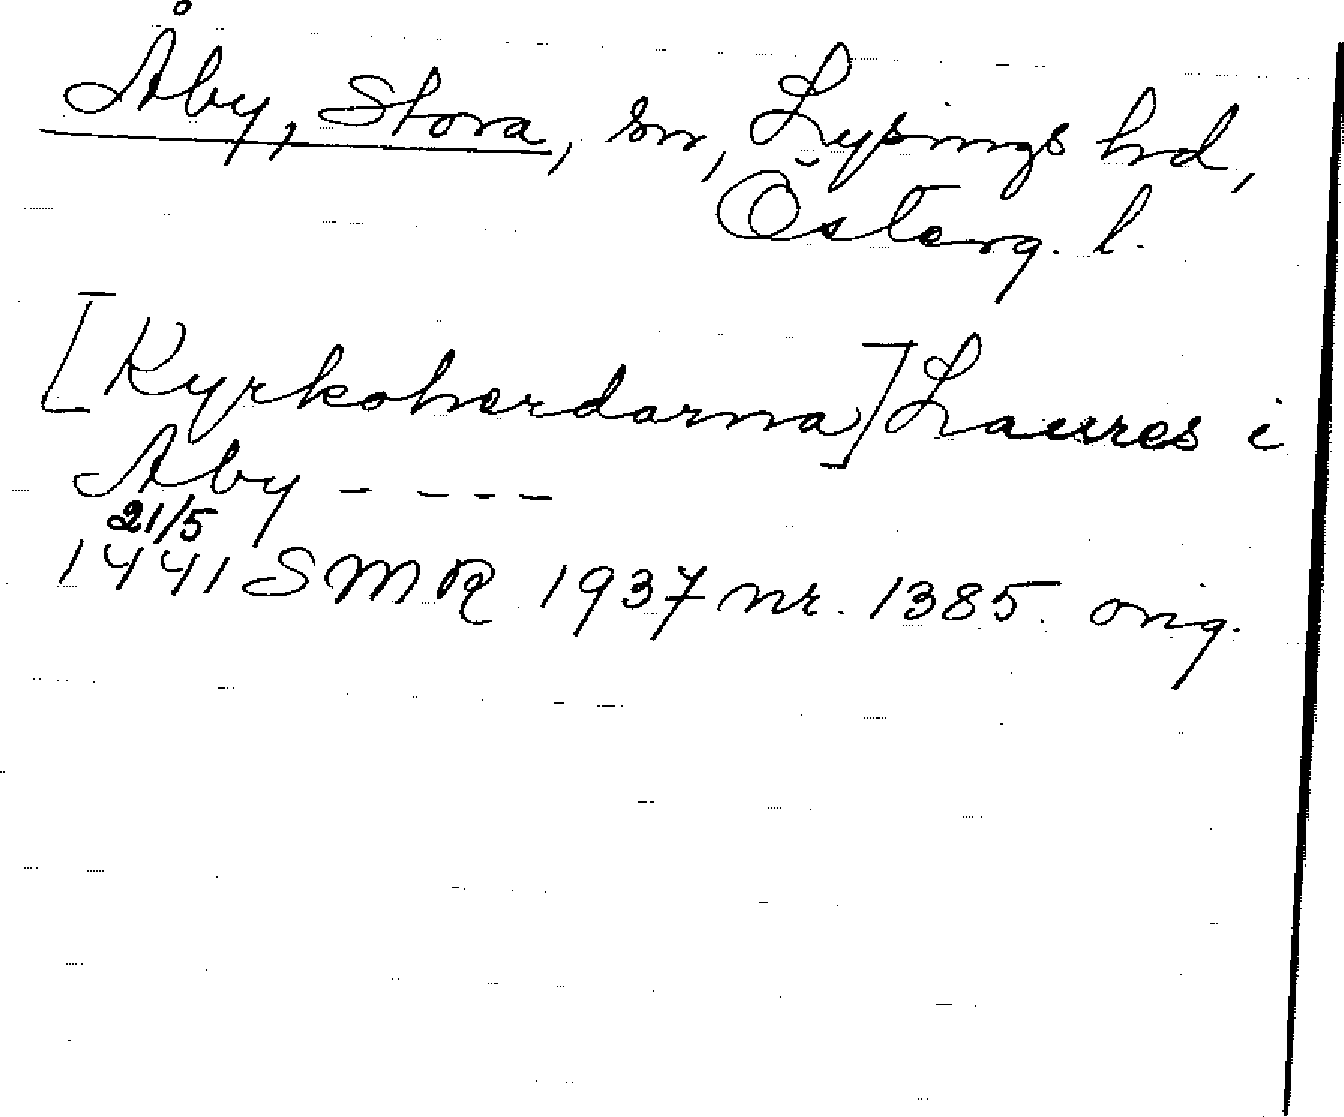 Åby, Stora, sn, Lysings hd,
Österg. l.
[Kyrkoherdarna] Laurres i
Aby - - - - -
21/5
1441 SMR 1937 nr. 1385. orig.